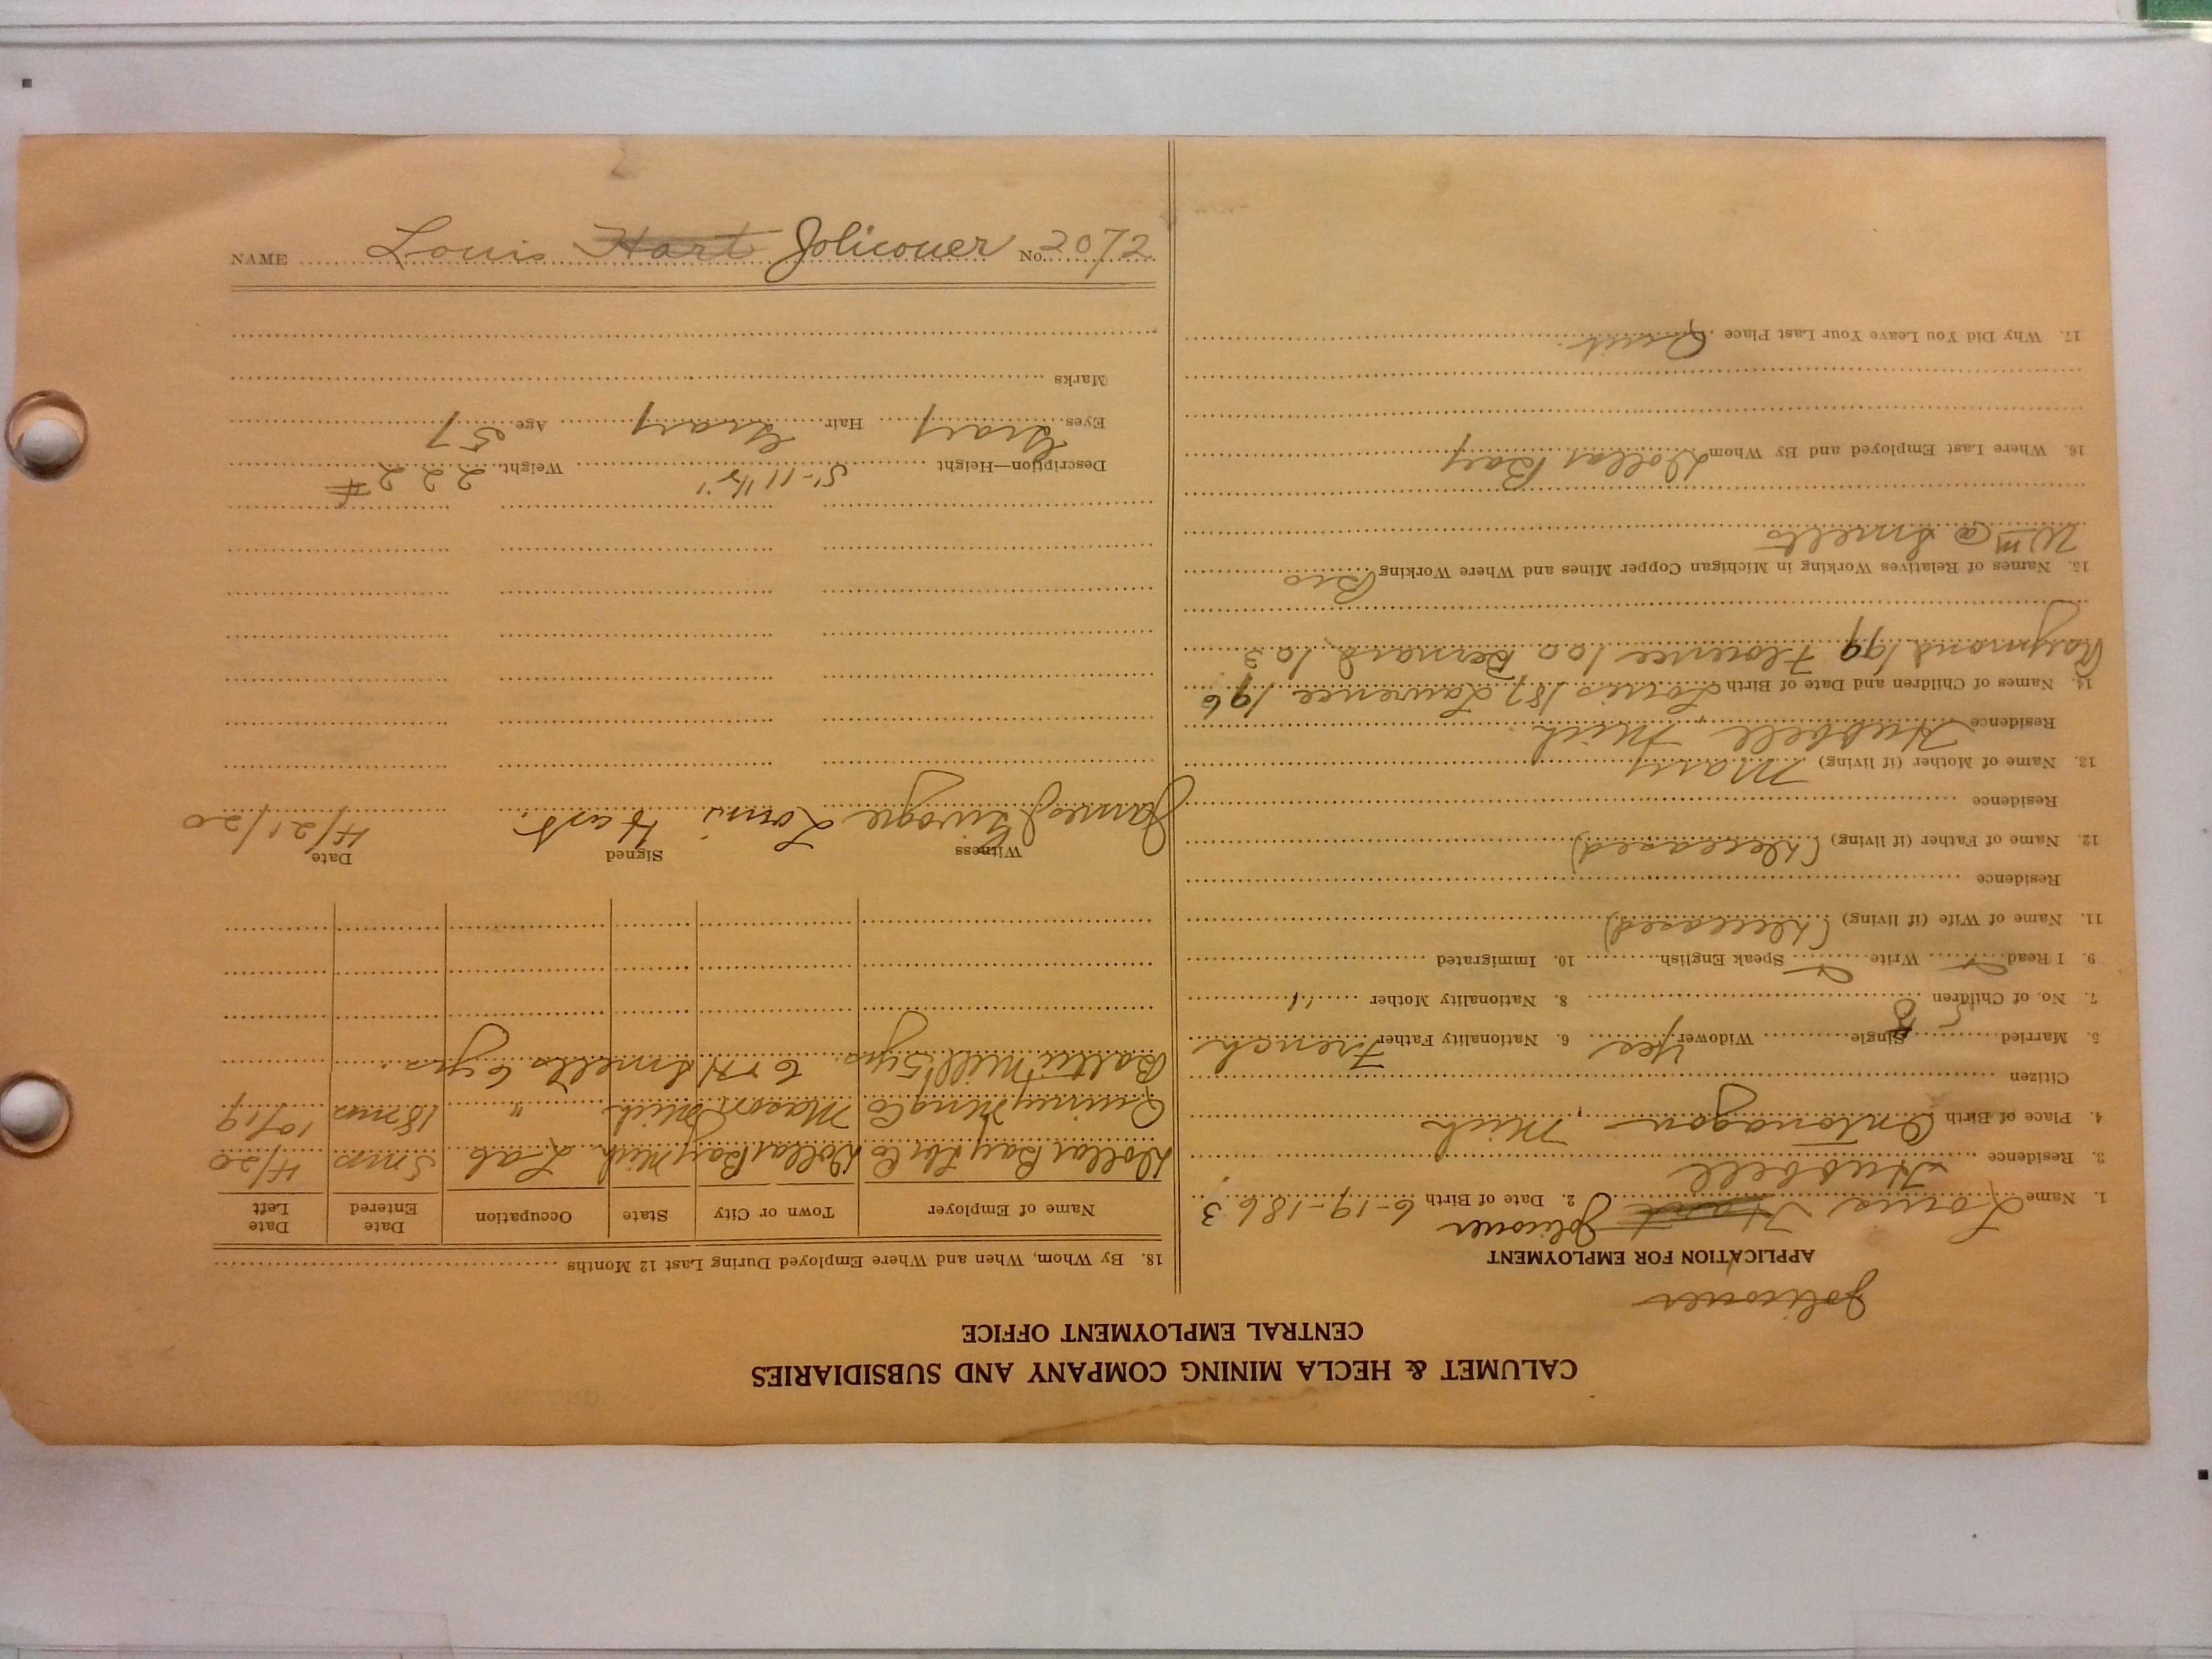 CALUMET & HECLA MINING COMPANY AND SUBSIDIARIES
CENTRAL EMPLOYMENT OFFICE
Jolicouer
APPLICATION FOR EMPLOYMENT
1. Name Louis Hart Jolicouer 2. Date of Birth 6-19-1863
3. Residence Hubbell
4. Place of Birth Ontonagon, Mich
Citizen
5. Married Single Widower Yes 6. Nationality Father French
7. No. of Children 8. Nationality Mother "
9. I Read Write Speak English 10. Immigrated
11. Name of Wife (if living) (Deceased)
Residence
12. Name of Father (if living) (Deceased)
Residence
13. Name of Mother (if living) Mary
Residence Hubbell, Mich.
14. Names of Children and Date of Birth Louis 187 Lawrence 196
Raymond 199 Florence 100 Bernard 103
15. Names of Relatives Working in Michigan Copper Mines and Where Working Bro
Wm @ Smelts
16. Where Last Employed and By Whom Dollar Bay
17. Why Did You Leave Your Last Place Quit.
18. By Whom, When and Where Employed During Last 12 Months
Name of Employer Town or City State Occupation Date Entered Date Left
Dollar Bay Co Dollar Bay Mich Lab 5 mos 4/20
Quincy Mng Co Mason Mich " 18 mos 10/19
Baltic Mill 5 yrs. C & H Smelts 6 yrs.
Witness Signed Date
James Louis Hart. 4/21/20
Description—Height 5'-11 1/2" Weight 222 #
Eyes Gray Hair Gray Age 57
Marks
NAME Louis Hart Jolicouer No. 2072